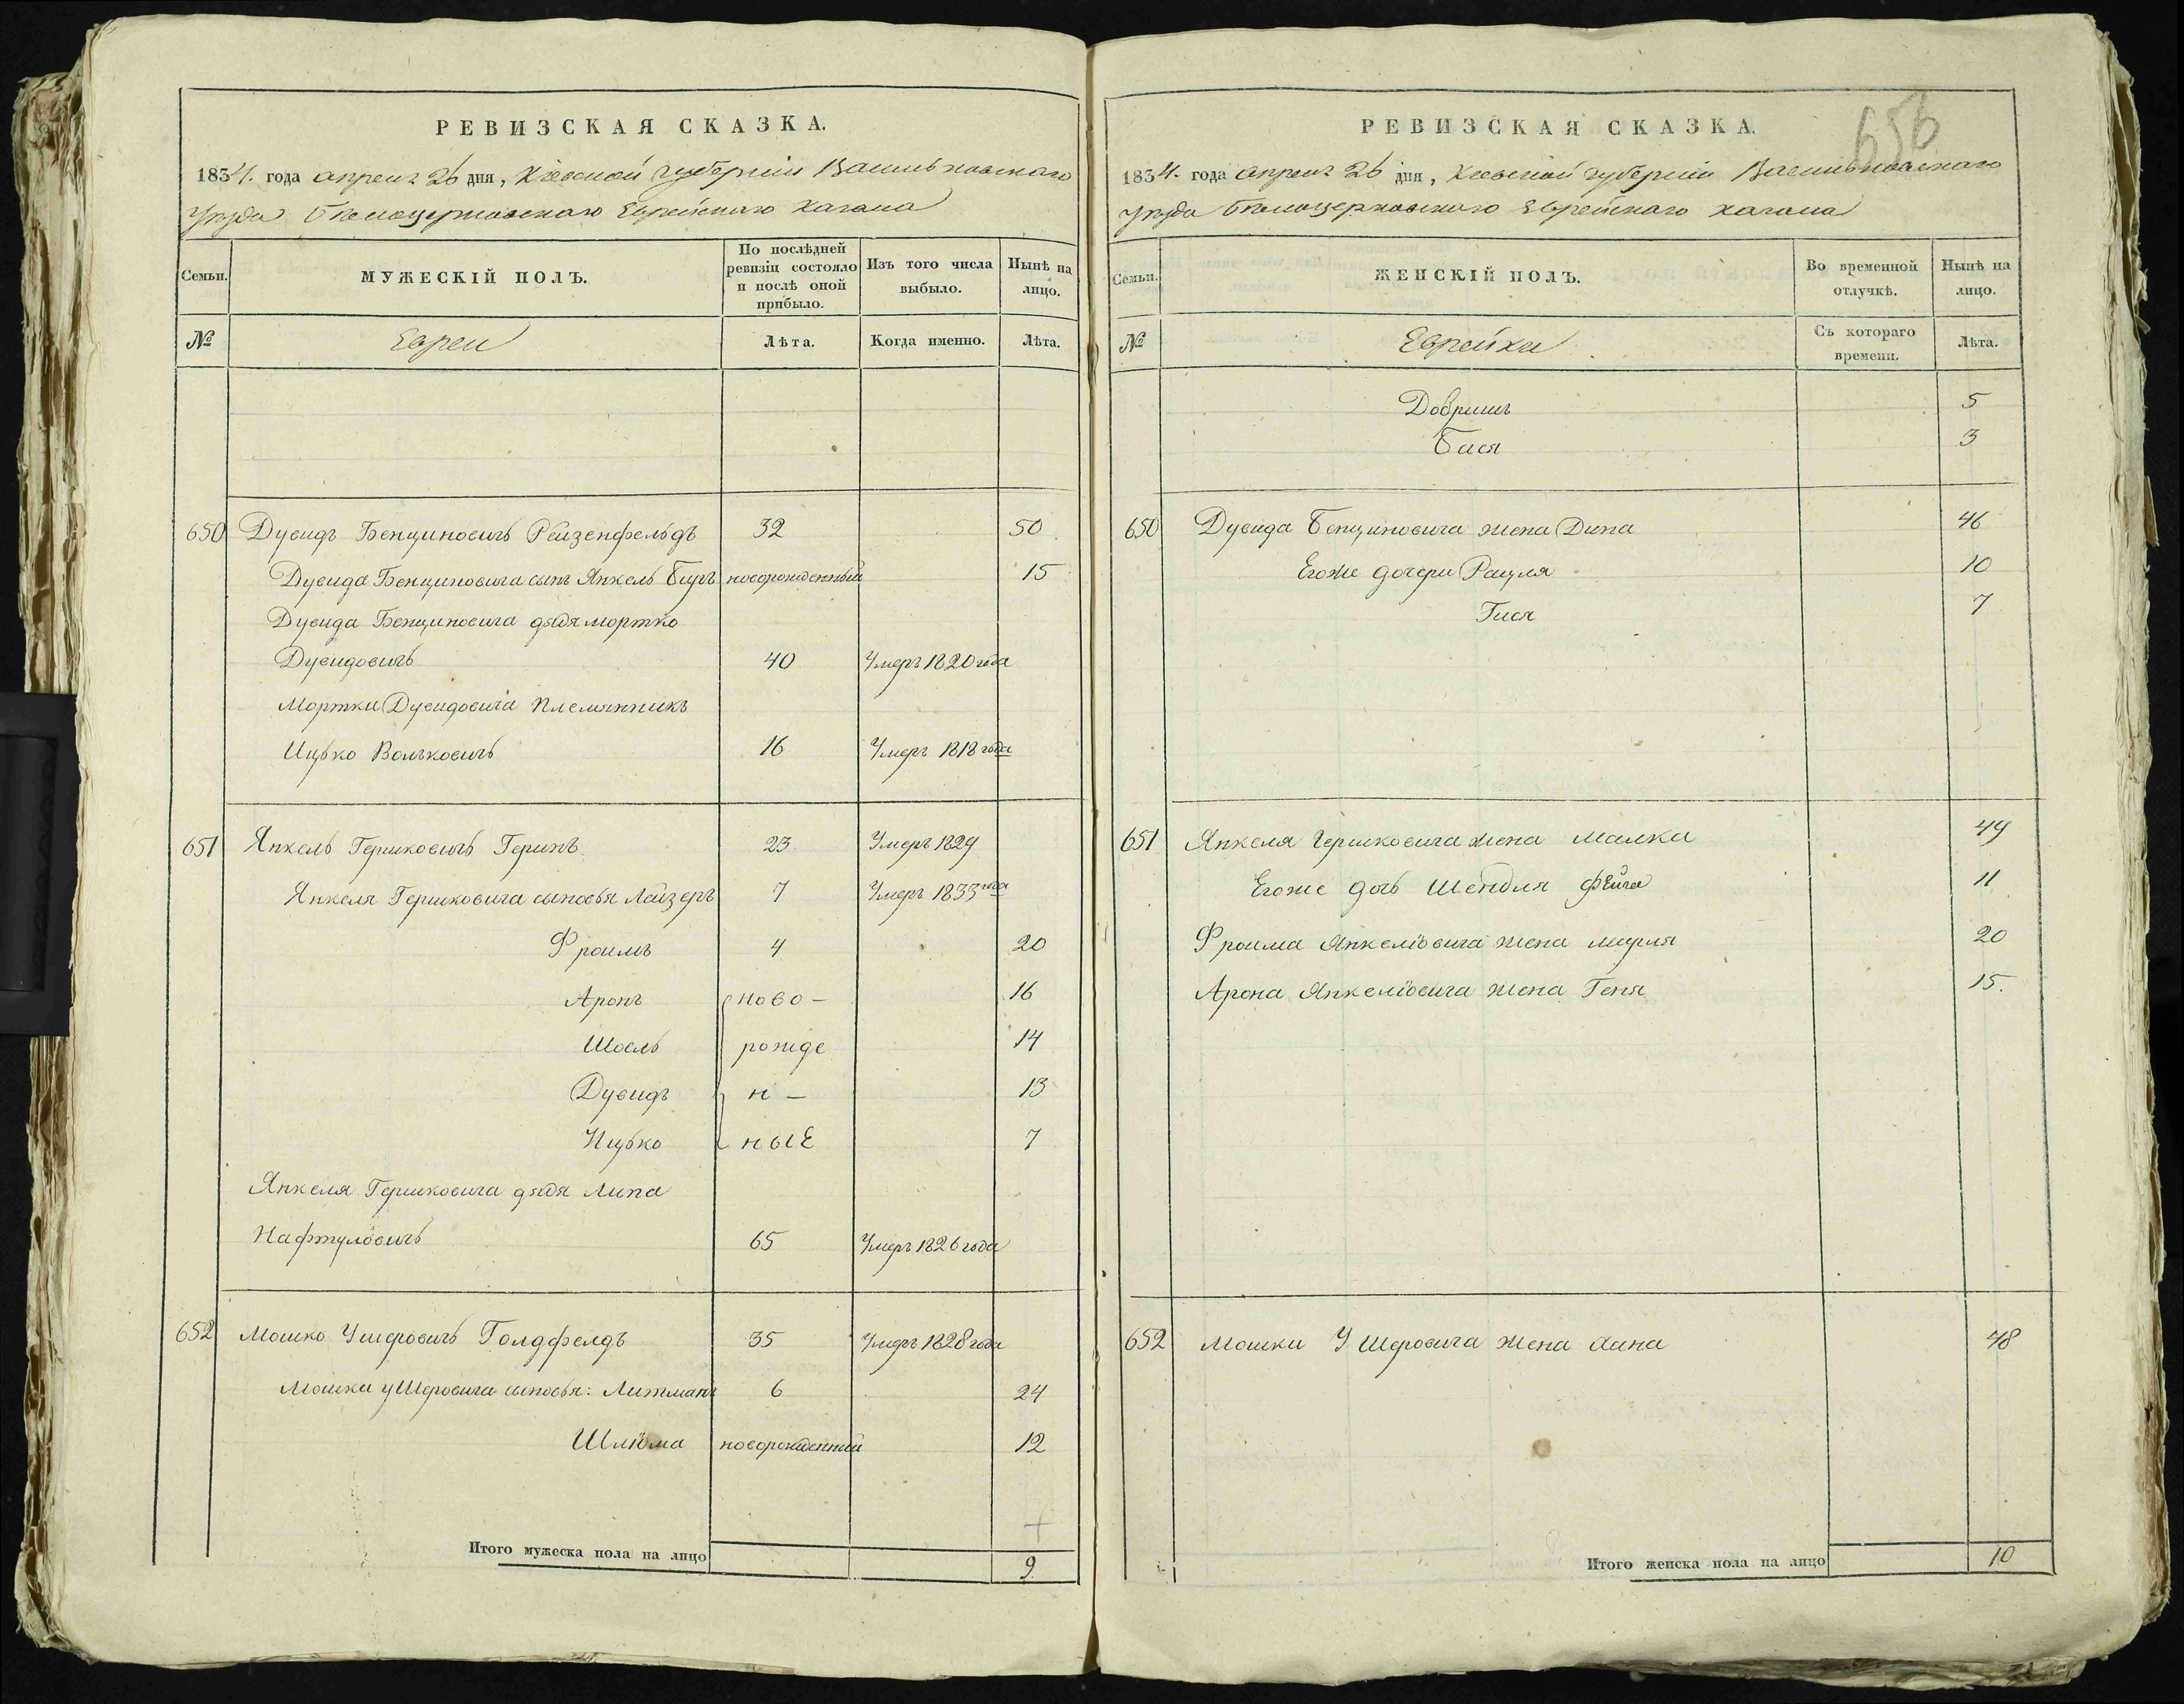 РЕВИЗСКАЯ СКАЗКА.
1834. года апреля 26 дня, Кіевской губерніи Васильковскаго
уезда Белоцерковскаго Еврейскаго кагала
Семьи.
МУЖЕСКІЙ ПОЛЪ.
По послѣдней ревизіи состояло и послѣ оной прибыло.
Изъ того числа выбыло.
Нынѣ на лицо.
№
Евреи
Лѣта.
Когда именно.
Лѣта.
650 Дувидъ Бенциновичъ Рейзенфельдъ 32 50
Дувида Бенциновича сынъ Янкель Беръ новорожденный 15
Дувида Бенциновича дядя мортко
Дувидовичъ 40 Умеръ 1820 года
Мортки Дувидовича племянникъ
Ицько Вольковичъ 16 Умеръ 1818 года
651 Янкель Гершковичъ 23 Умеръ 1829
Янкеля Гершковича сыновья Лейзеръ 7 Умеръ 1833 года
Фроимъ 4 20
Аронъ ново- 16
Шоель рожде 14
Дувидъ н- 13
Ицько ные 7
Янкеля Гершковича дядя Липа
Нафтуловичъ 65 Умеръ 1826 года
652 Мошко Ушеровичъ Голдфелдъ 35 Умеръ 1828 года
Мошки Ушеровича сыновья: Литманъ 6 24
Шліома новорожденный 12
Итого мужеска пола на лицо 9
656
РЕВИЗСКАЯ СКАЗКА.
1834. года апреля 26 дня, Кіевской губерніи Васильковскаго
уезда Белоцерковскаго Еврейскаго кагала
Семьи.
ЖЕНСКІЙ ПОЛЪ.
Во временной отлучкѣ.
Нынѣ на лицо.
№
Еврейки
Съ котораго времени.
Лѣта.
Добришъ 5
Бася 3
650 Дувида Бенциновича жена Дина 46
Егоже дочери Рацля 10
Гися 7
651 Янкеля Гершковича жена малка 49
Егоже дочь Шейдля фейга 11
Фроима Янкеліовича жена мирля 20
Арона Янкеліовича жена Геня 15.
652 Мошки Ушеровича жена Хана 48
Итого женска пола на лицо 10